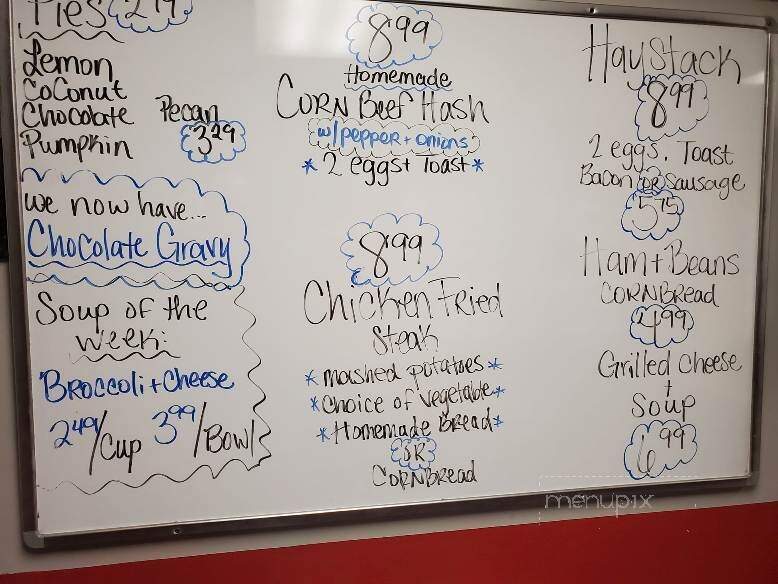 Pies 2.79
Lemon
Coconut
Chocolate Pecan
Pumpkin 3.29
we now have...
Chocolate Gravy
Soup of the
week:
Broccoli + Cheese
2.49/Cup 3.99/Bowl
8.99
Homemade
CORN Beef Hash
w/pepper + onions
* 2 eggs + Toast *
8.99
Chicken Fried
Steak
* mashed potatoes *
* Choice of vegetable *
* Homemade Bread *
OR
CORNBREAD
Haystack
8.99
2 eggs. Toast
Bacon OR Sausage
5.75
Ham + Beans
CORNBREAD
4.99
Grilled Cheese
+
Soup
6.99
menupix